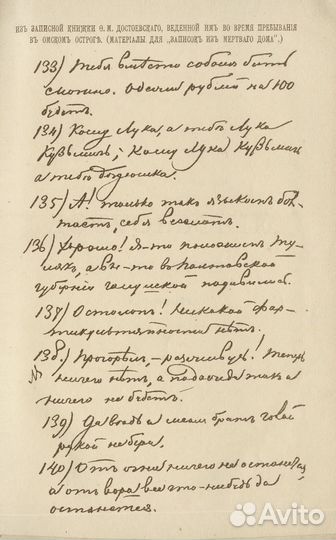 ИЗЪ ЗАПИСНОЙ КНИЖКИ Ѳ. М. ДОСТОЕВСКАГО, ВЕДЕННОЙ ИМЪ ВО ВРЕМЯ ПРЕБЫВАНІЯ
ВЪ ОМСКОМЪ ОСТРОГѢ. (МАТЕРІАЛЫ ДЛЯ „ЗАПИСОКЪ ИЗЪ МЕРТВАГО ДОМА".)
133) Тебя вмѣсто собаки бить
можно. рублей на 100
будетъ.
134) Кому Лука, а тебѣ Лука
Кузьмичъ; Кому Лука Кузьмичъ
а тебѣ дядюшка.
135) А! только такъ языкомъ
себя веселитъ.
136) Хорошо! Я-то
а вы-то въ Полтавской
губерніи галушкой подавился.
137) Остолопъ! Никакой фар-
тикультяпности нѣтъ.
138) Прогорѣлъ, ! Теперь
№ ничего нѣтъ, а подожди такъ и
ничего не будетъ.
139) Да вѣдь и мы братъ
рукой не бери.
140) Отъ огня ничего не останется
а отъ вора все что-нибудь да
останется.
Avito